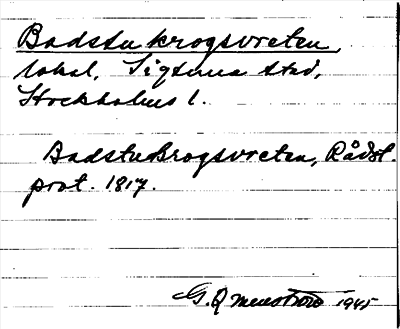 Badstukrogsvreten,
lokal, Sigtuna stad,
Stockholms l.
Badstukrogsvreten, Rådst.
prot. 1817.
G. 1945